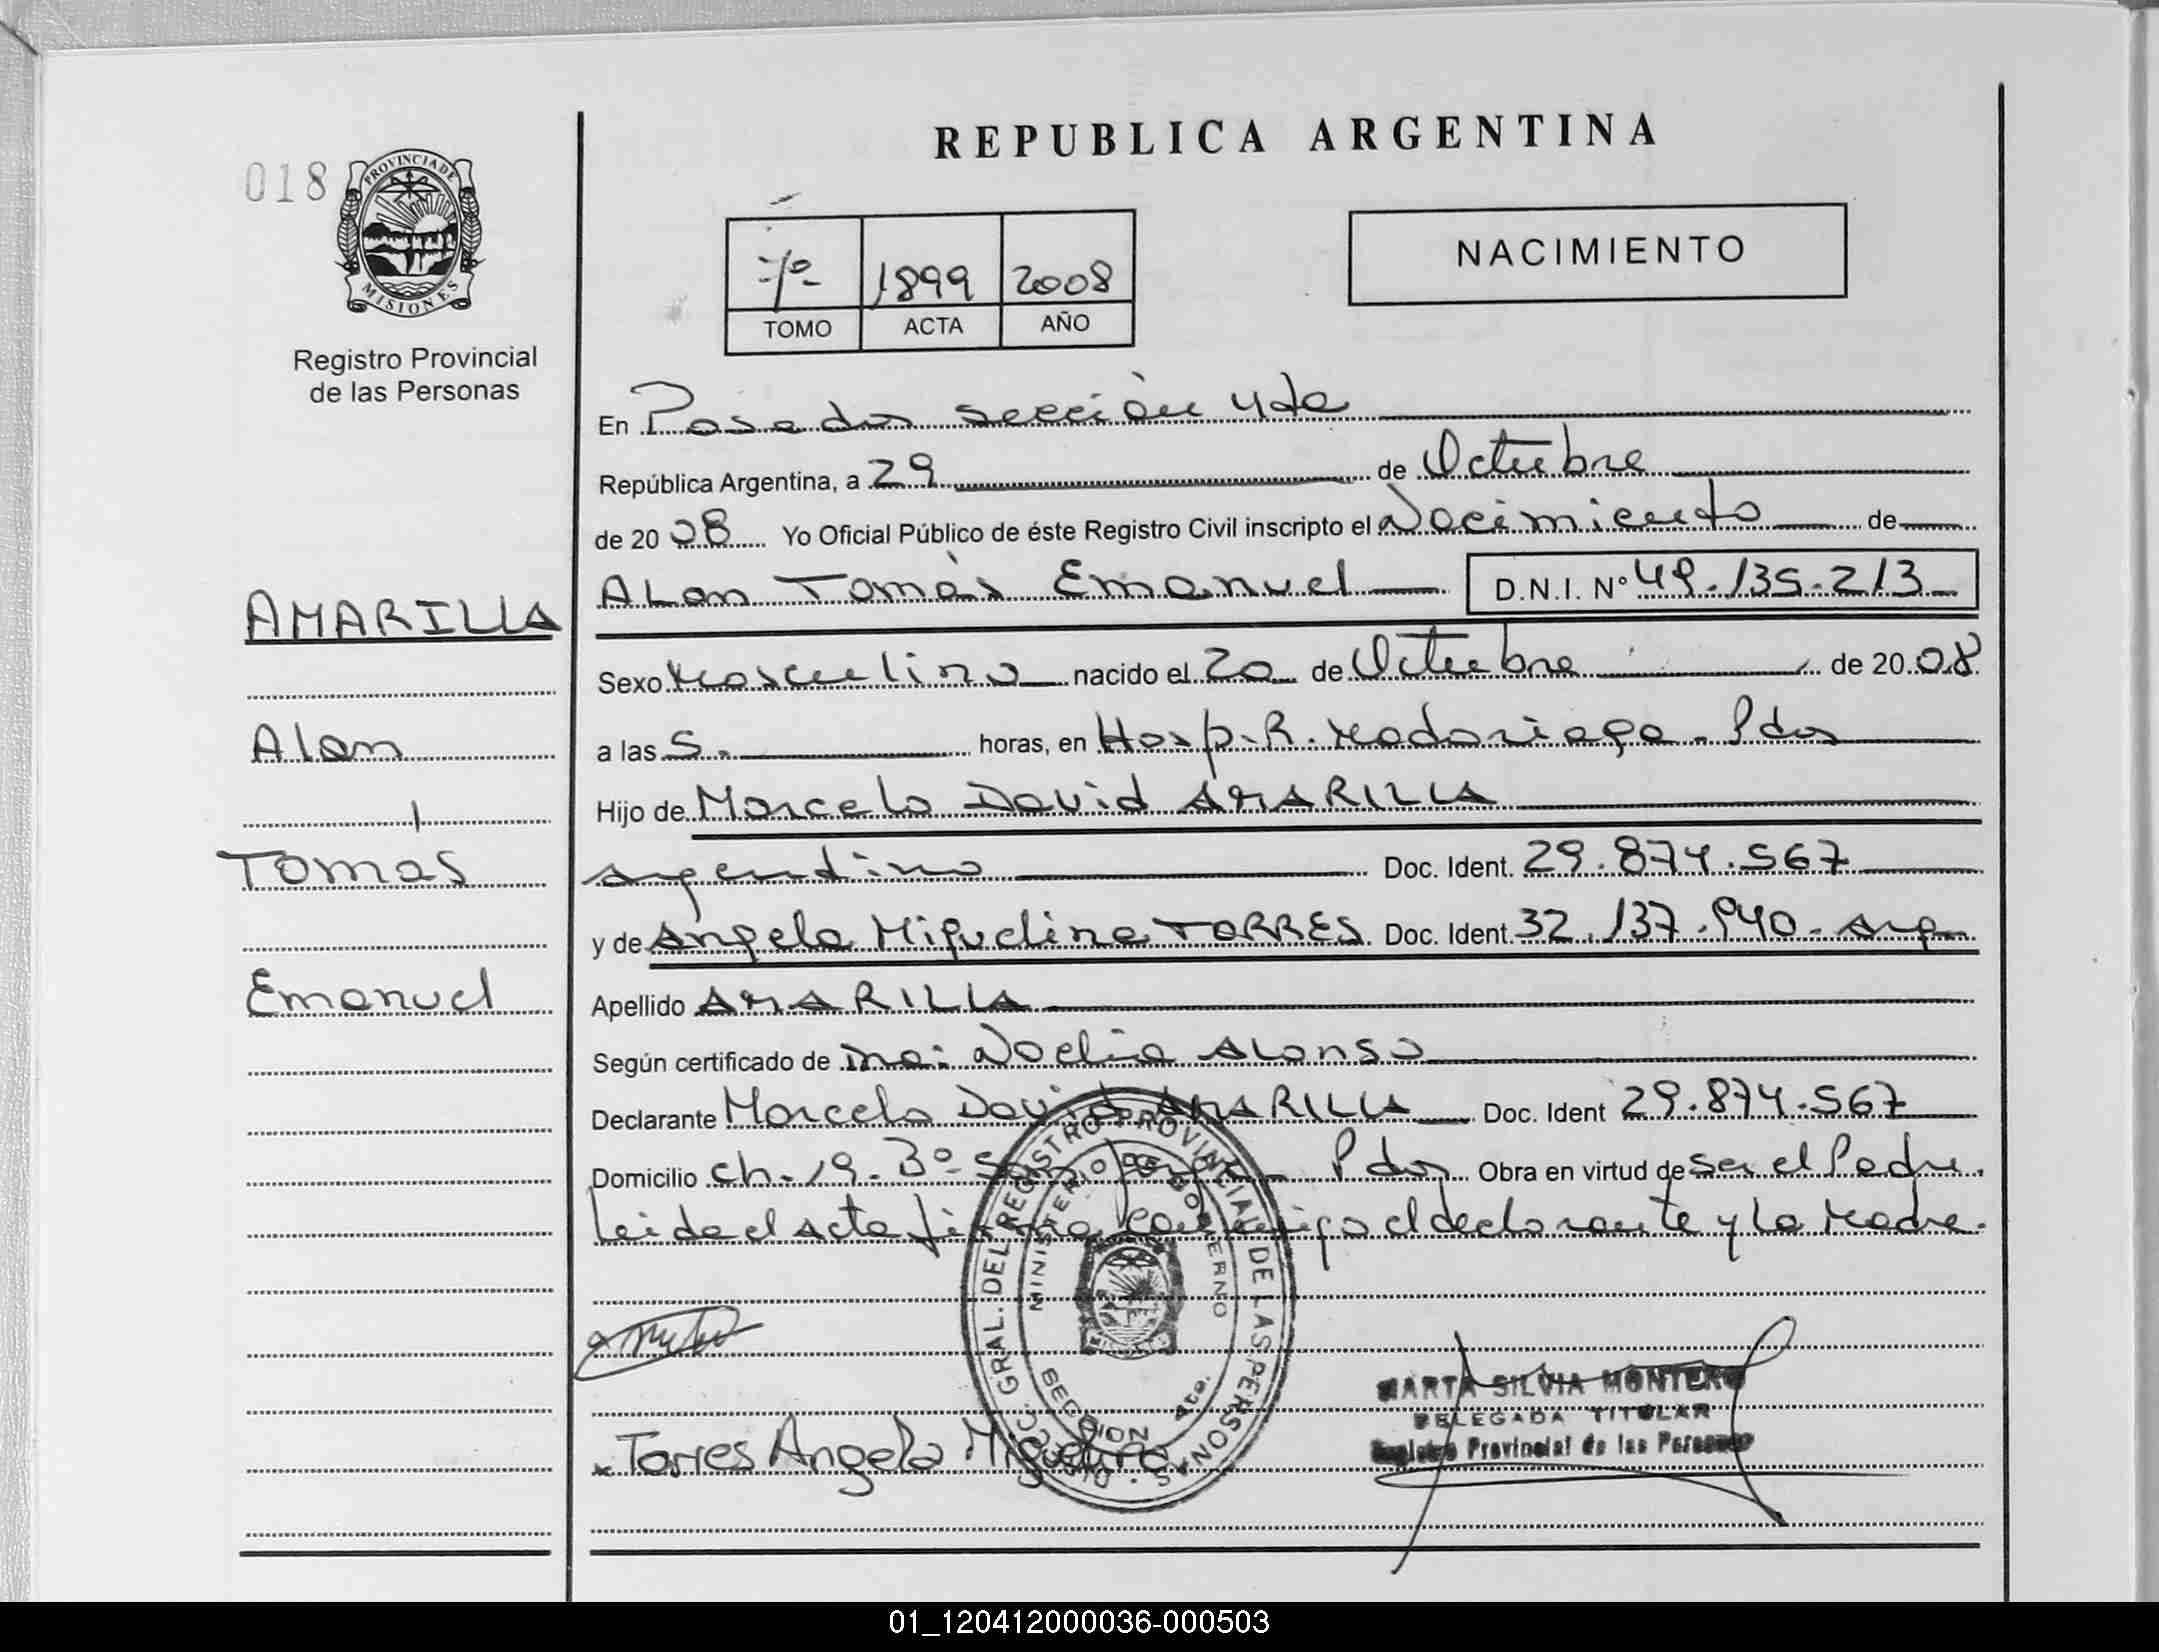 REPUBLICA ARGENTINA
018
PROVINCIA DE
MISIONES
Registro Provincial
de las Personas
NACIMIENTO
1899 2008
TOMO ACTA AÑO
En Posadas sección 4ta
República Argentina, a 29 de Octubre
de 2008 Yo Oficial Público de éste Registro Civil inscripto el Nacimiento de
AMARILLA
Alan Tomàs Emanuel D.N.I. Nº 49.135.213
Sexo Masculino nacido el 20 de Octubre de 2008
Alan
a las 5. horas, en Hosp. R. Madariaga. Pdas
Hijo de Marcelo David AMARILLA
Tomás
Argentino Doc. Ident. 29.874.567
y de Angela Miguelina TORRES. Doc. Ident. 32.137.940. Arg
Emanuel
Apellido AMARILLA
Según certificado de Dra: Noelia Alonso
Declarante Marcelo David AMARILLA Doc. Ident 29.874.567
Domicilio ch. 19. 3º Pdas Obra en virtud de ser el Padre.
Leida el Acta firma conmigo el declarante y la Madre.
DIRECC. GRAL. DEL REGISTRO PROVINCIAL DE LAS PERSONAS
MINISTERIO DE GOBIERNO
SECCION 4ta.
MARTA SILVIA MONTERO
DELEGADA TITULAR
Registro Provincial de las Personas
x Torres Angela Miguelina
01_120412000036-000503